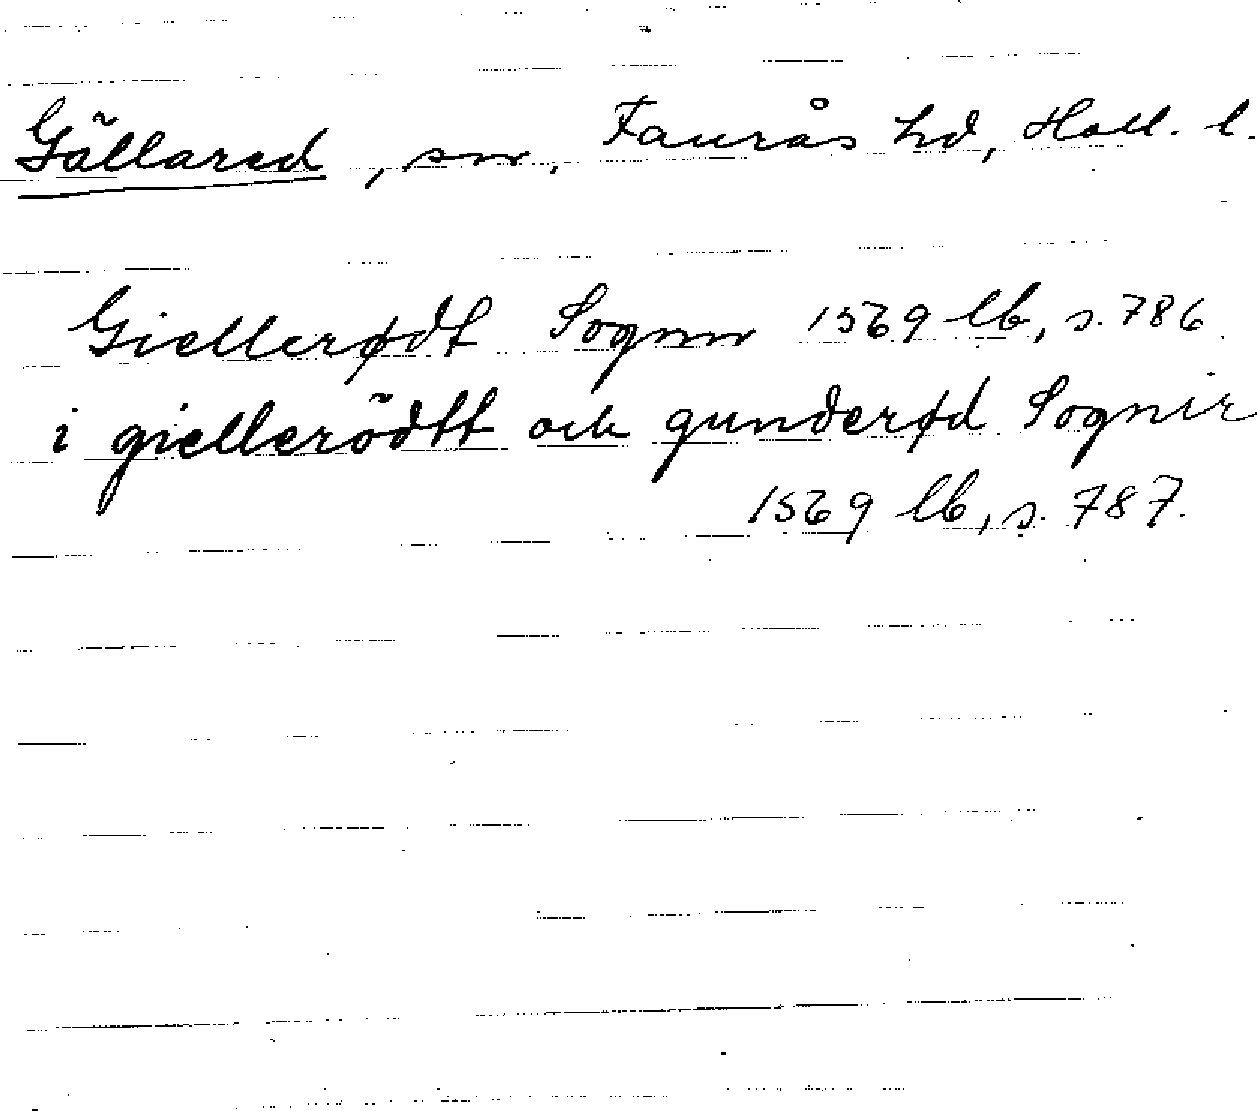 Gällared, sn, Faurås hd, Hall. l.
Giellerødt Sognn 1569 lb, s. 786
i giellerödtt och gunderød Sognir
1569 lb, s. 787.